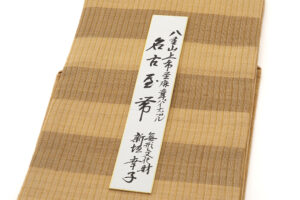 八重山上布
名古屋帯
無形文化財
新垣幸子